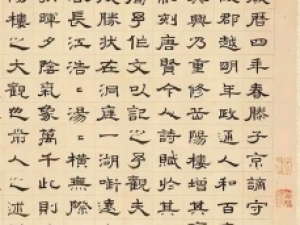 慶曆四年春滕子京謫守
郡越明年政通人和百
興乃重修岳陽樓增其
制刻唐賢今人詩賦於其
予作文以記之予觀夫
勝狀在洞庭一湖銜遠
長江浩〻湯〻橫無際
暉夕陰氣象萬千此則
陽樓之大觀也前人之述